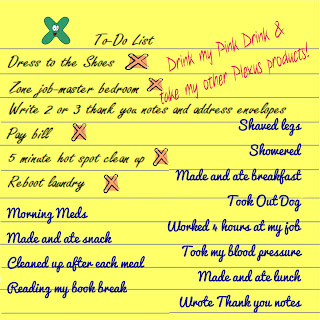 To-Do List
Drink my Pink Drink &
take my other Plexus products!
Dress to the Shoes
Zone job-master bedroom
Write 2 or 3 thank you notes and address envelopes
Pay bill
5 minute hot spot clean up
Reboot laundry
Shaved legs
Showered
Made and ate breakfast
Took Out Dog
Worked 4 hours at my job
Took my blood pressure
Made and ate lunch
Wrote Thank you notes
Morning Meds
Made and ate snack
Cleaned up after each meal
Reading my book break